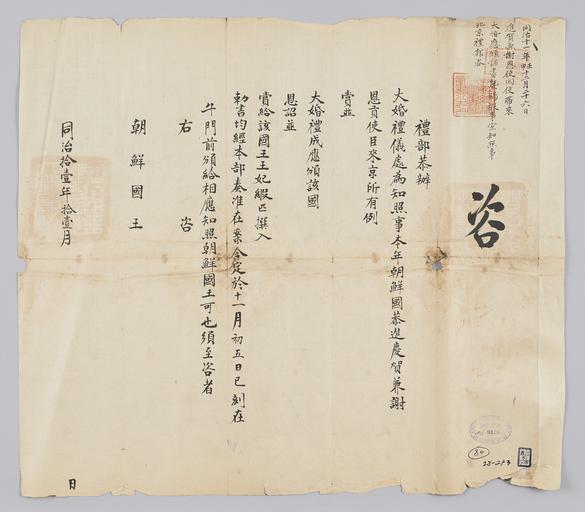 同治十一年壬申十二月二十六日
進賀兼謝恩使回使賫來
北京禮部咨
咨
禮部恭辦
大婚禮儀處為知照事本年朝鮮國恭進慶賀兼謝
恩貢使臣來京所有例
賞並
大婚禮成應頒該國
恩詔並
賞給該國王王妃緞匹撰入
勅書均經本部奏准在案今定於十一月初五日巳刻在
午門前頒給相應知照朝鮮國王可也須至咨者
右咨
朝鮮國王
同治拾壹年拾壹月
日
80
28-273